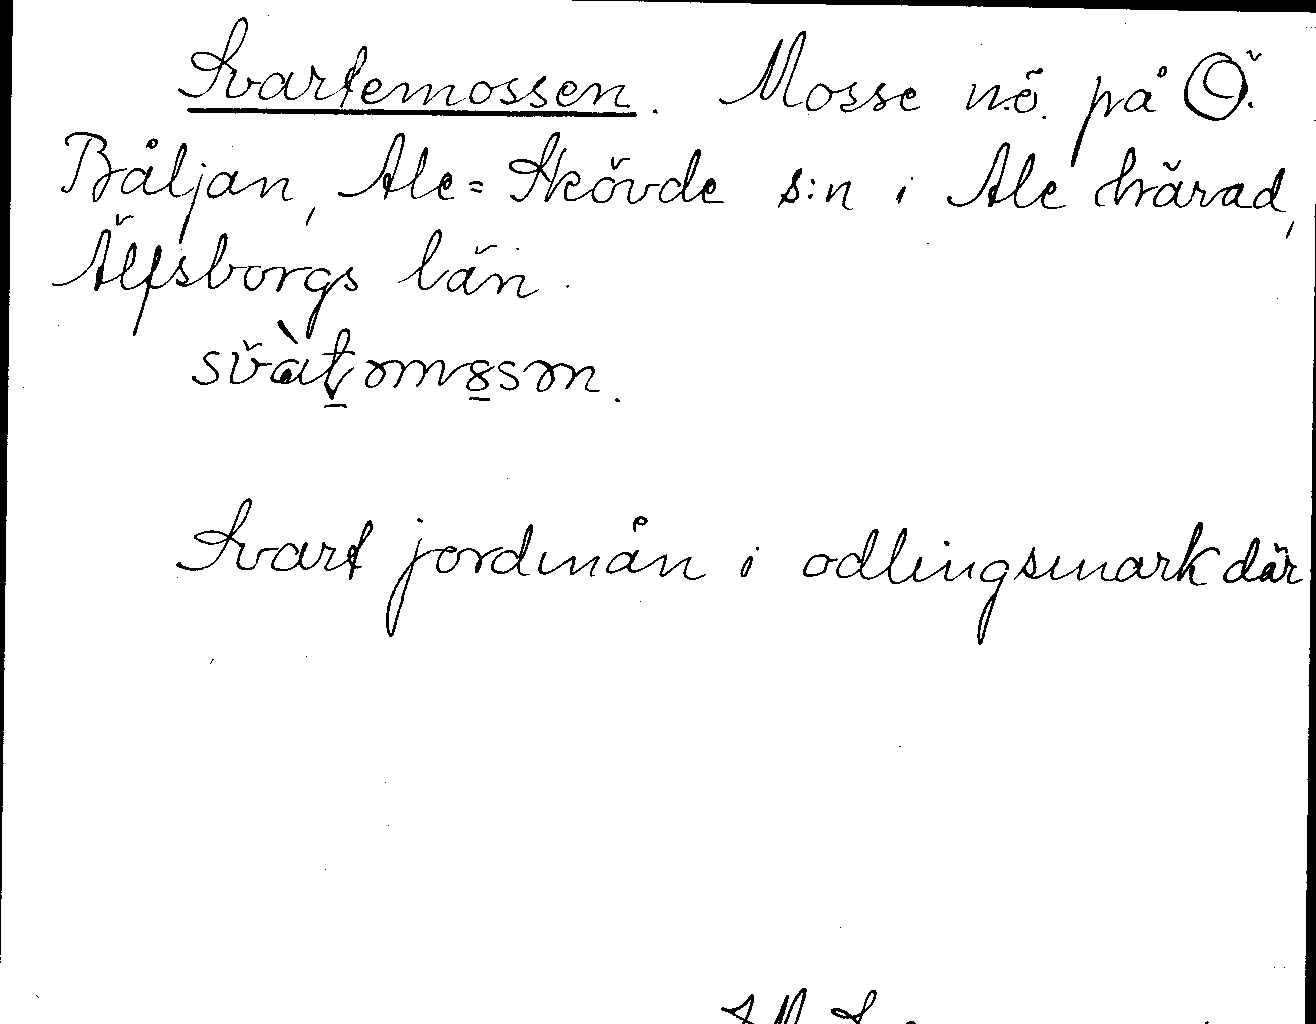 Svartemossen. Mosse nö. på Ö.
Båljan, Ale-Skövde s:n i Ale härad,
Älfsborgs län.
svàt̠əmo̠sən.
Svart jordmån i odlingsmark där